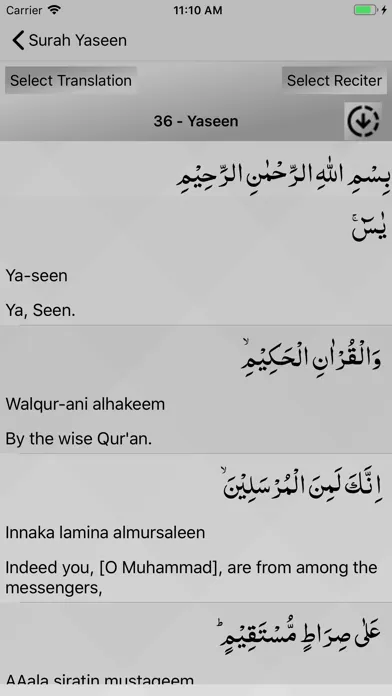 Carrier 11:10 AM
Surah Yaseen
Select Translation Select Reciter
36 - Yaseen
بِسْمِ اللهِ الرَّحْمٰنِ الرَّحِيْمِ
يٰسٓ ۚ
Ya-seen
Ya, Seen.
وَالْقُرْاٰنِ الْحَكِيْمِ ۙ
Walqur-ani alhakeem
By the wise Qur'an.
اِنَّكَ لَمِنَ الْمُرْسَلِيْنَ ۙ
Innaka lamina almursaleen
Indeed you, [O Muhammad], are from among the
messengers,
عَلٰى صِرَاطٍ مُّسْتَقِيْمٍ ؕ
AAala siratin mustaqeem